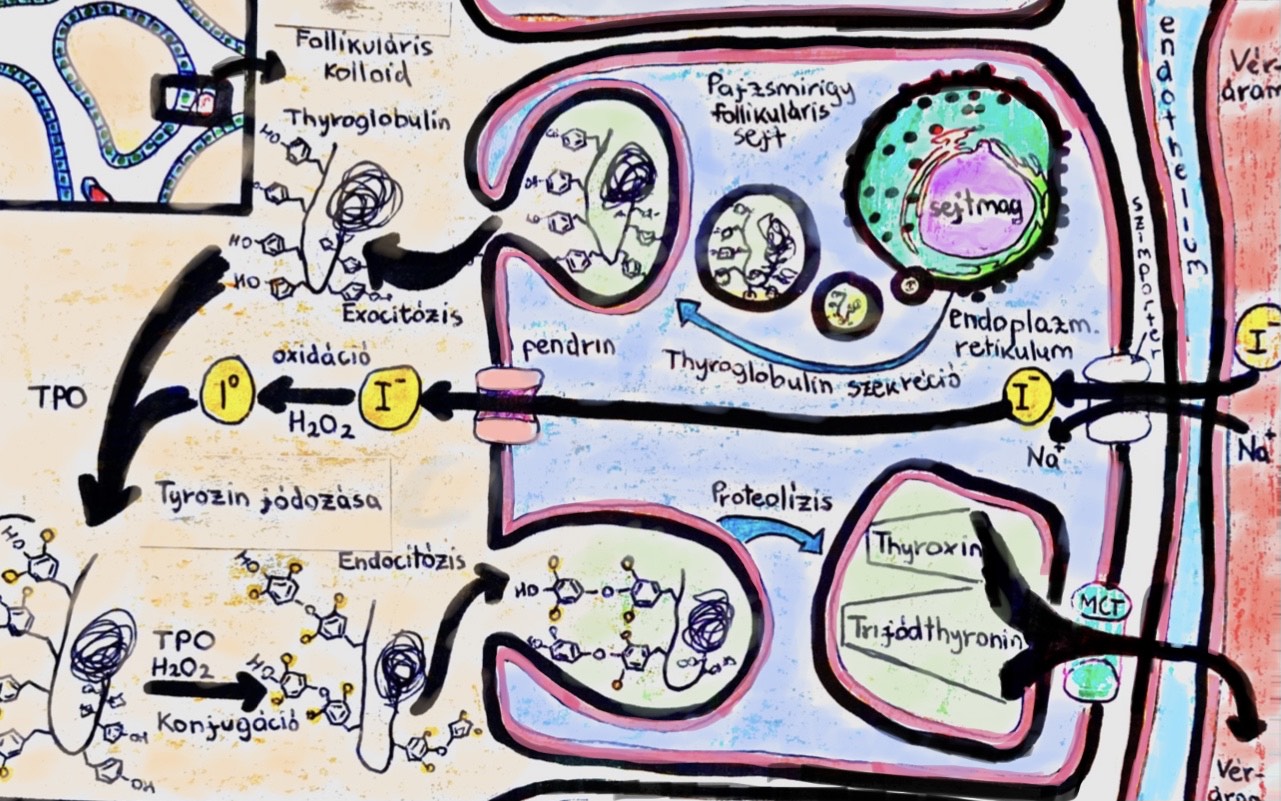 Follikuláris
kolloid
Thyroglobulin
HO
HO
HO
Exocitózis
TPO
oxidáció
I⁰
I⁻
H₂O₂
Tyrozin jódozása
HO
HO
TPO
H₂O₂
Konjugáció
HO
OH
OH
Endocitózis
HO
Pajzsmirigy
follikuláris
sejt
sejtmag
endoplazm.
retikulum
Thyroglobulin szekréció
pendrin
I⁻
Na⁺
Proteolízis
Thyroxin
Trijódthyronin
MCT
szimporter
endothelium
Vér-
áram
I⁻
Na⁺
Vér-
áram